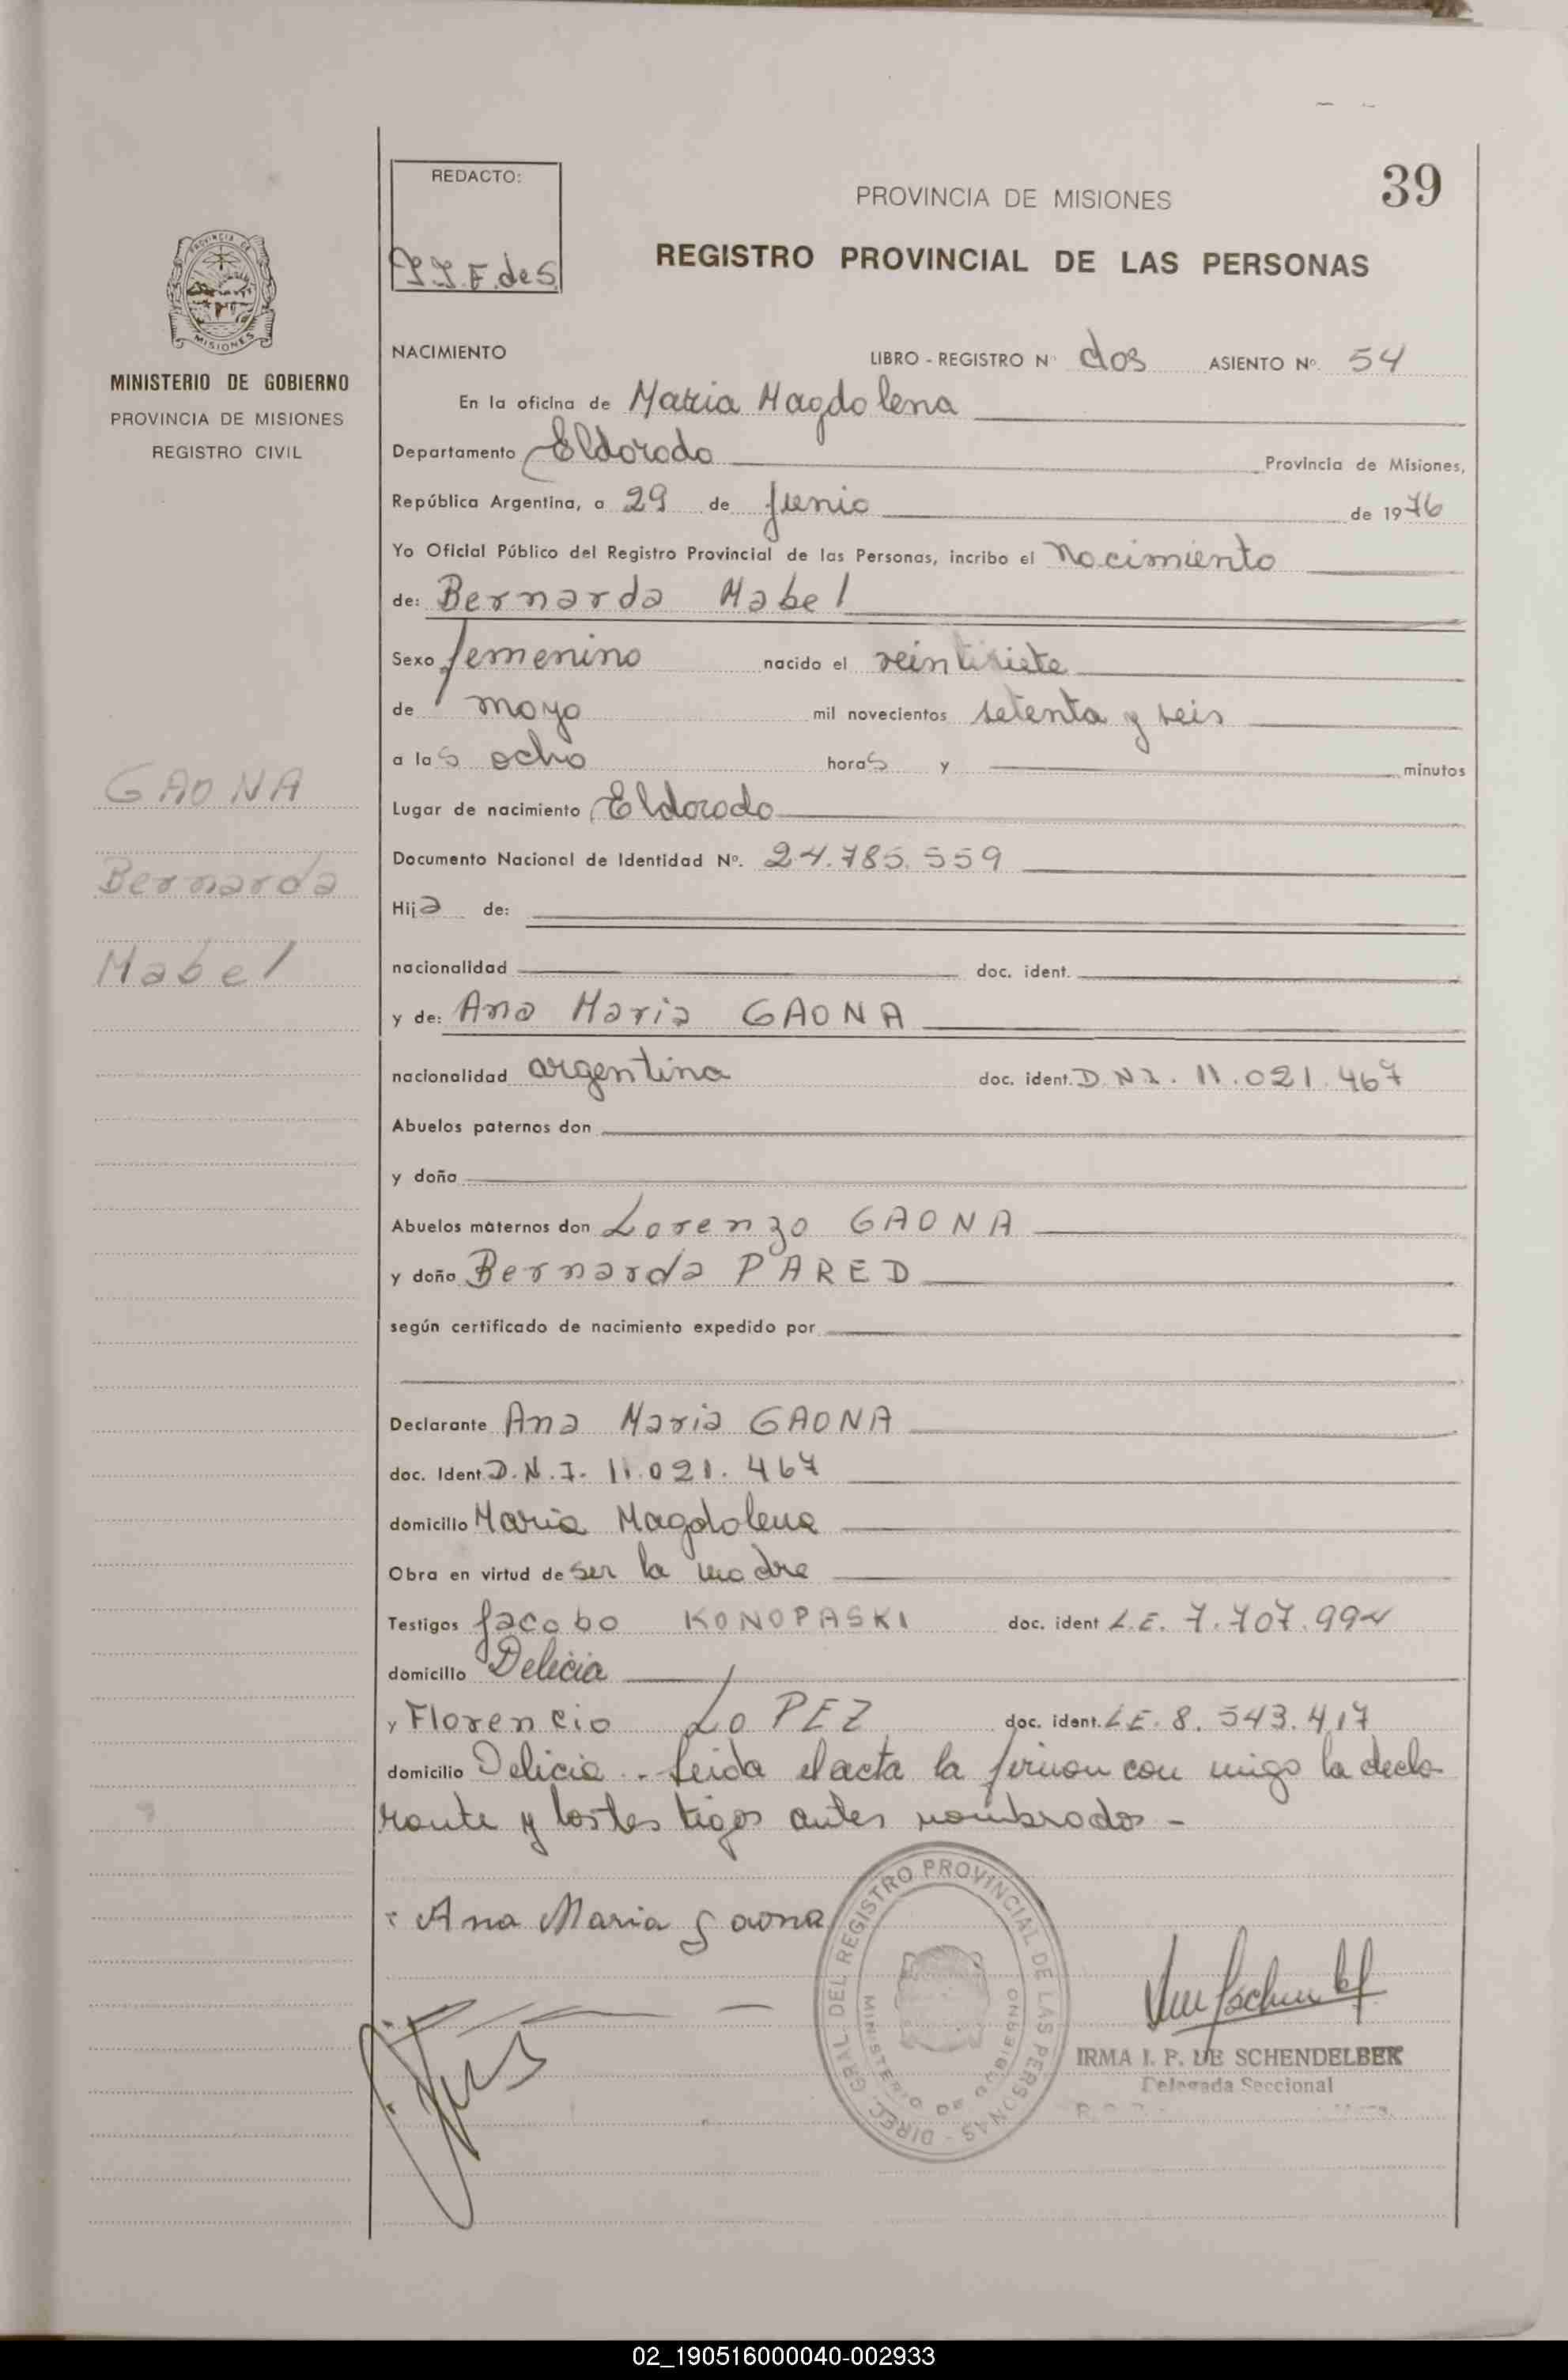 REDACTO:
39
PROVINCIA DE MISIONES
REGISTRO PROVINCIAL DE LAS PERSONAS
PROVINCIA DE
MISIONES
MINISTERIO DE GOBIERNO
PROVINCIA DE MISIONES
REGISTRO CIVIL
NACIMIENTO LIBRO - REGISTRO Nº dos ASIENTO Nº. 54
En la oficina de Maria Magdalena
Departamento Eldorado Provincia de Misiones,
República Argentina, a 29 de Junio de 1976
Yo Oficial Público del Registro Provincial de las Personas, incribo el Nacimiento
de: Bernarda Mabel
Sexo femenino nacido el veintisiete
de mayo mil novecientos setenta y seis
a las ocho horas y minutos
Lugar de nacimiento Eldorado
Documento Nacional de Identidad Nº. 24.785.559
Hija de:
nacionalidad doc. ident.
y de: Ana Maria GAONA
nacionalidad argentina doc. ident. D.N.I. 11.021.467
Abuelos paternos don
y doña
Abuelos maternos don Lorenzo GAONA
y doña Bernarda PARED
según certificado de nacimiento expedido por
Declarante Ana Maria GAONA
doc. Ident D.N.I. 11.021.467
domicilio Maria Magdalena
Obra en virtud de ser la madre
Testigos Jacobo KONOPASKI doc. ident L.E. 7.707.994
domicilio Delicia
y Florencio LoPEZ doc. ident. L.E. 8.543.417
domicilio Delicia.- Leida el acta la firman con migo la decla
rante y los testigos antes nombrados -
GAONA
Bernarda
Mabel
Ana Maria Gaona
DIREC. GRAL. DEL REGISTRO PROVINCIAL DE LAS PERSONAS -
MINISTERIO DE GOBIERNO
IRMA I. P. DE SCHENDELBEK
Delegada Seccional
02_190516000040-002933